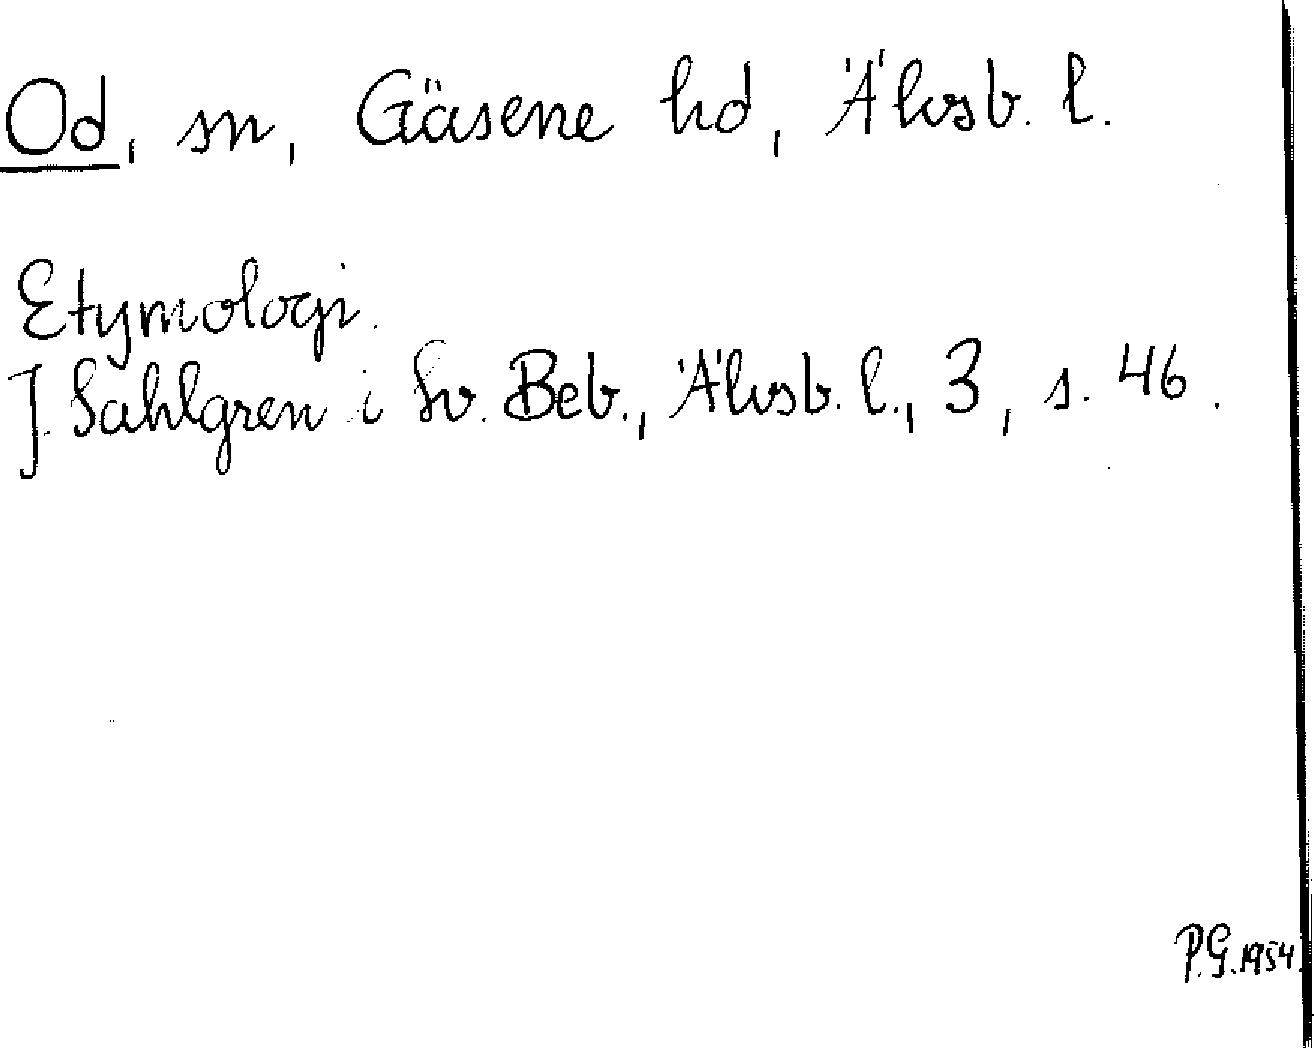 Od, sn, Gäsene hd, Älvsb. l.
Etymologi.
J. Sahlgren i Sv. Beb., Älvsb. l., 3, s. 46.
P.G. 1954.